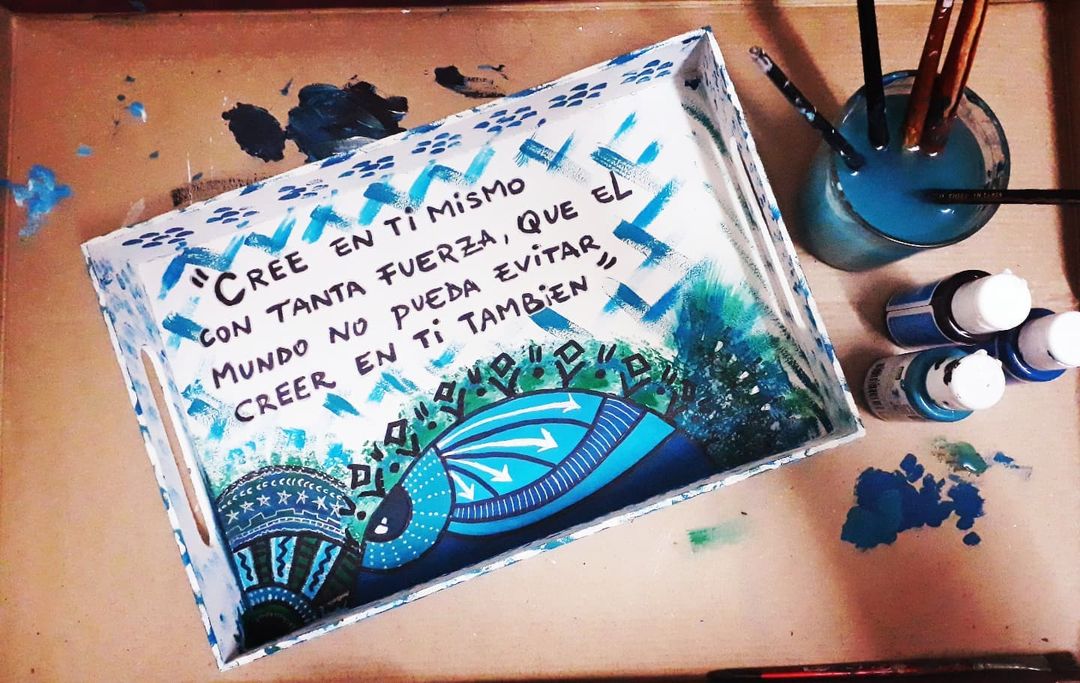 "CREE EN Ti MiSMO
CON TANTA FUERZA, QUE EL
MUNDO NO PUEDA EViTAR
CREER EN Ti TAMBiEN"